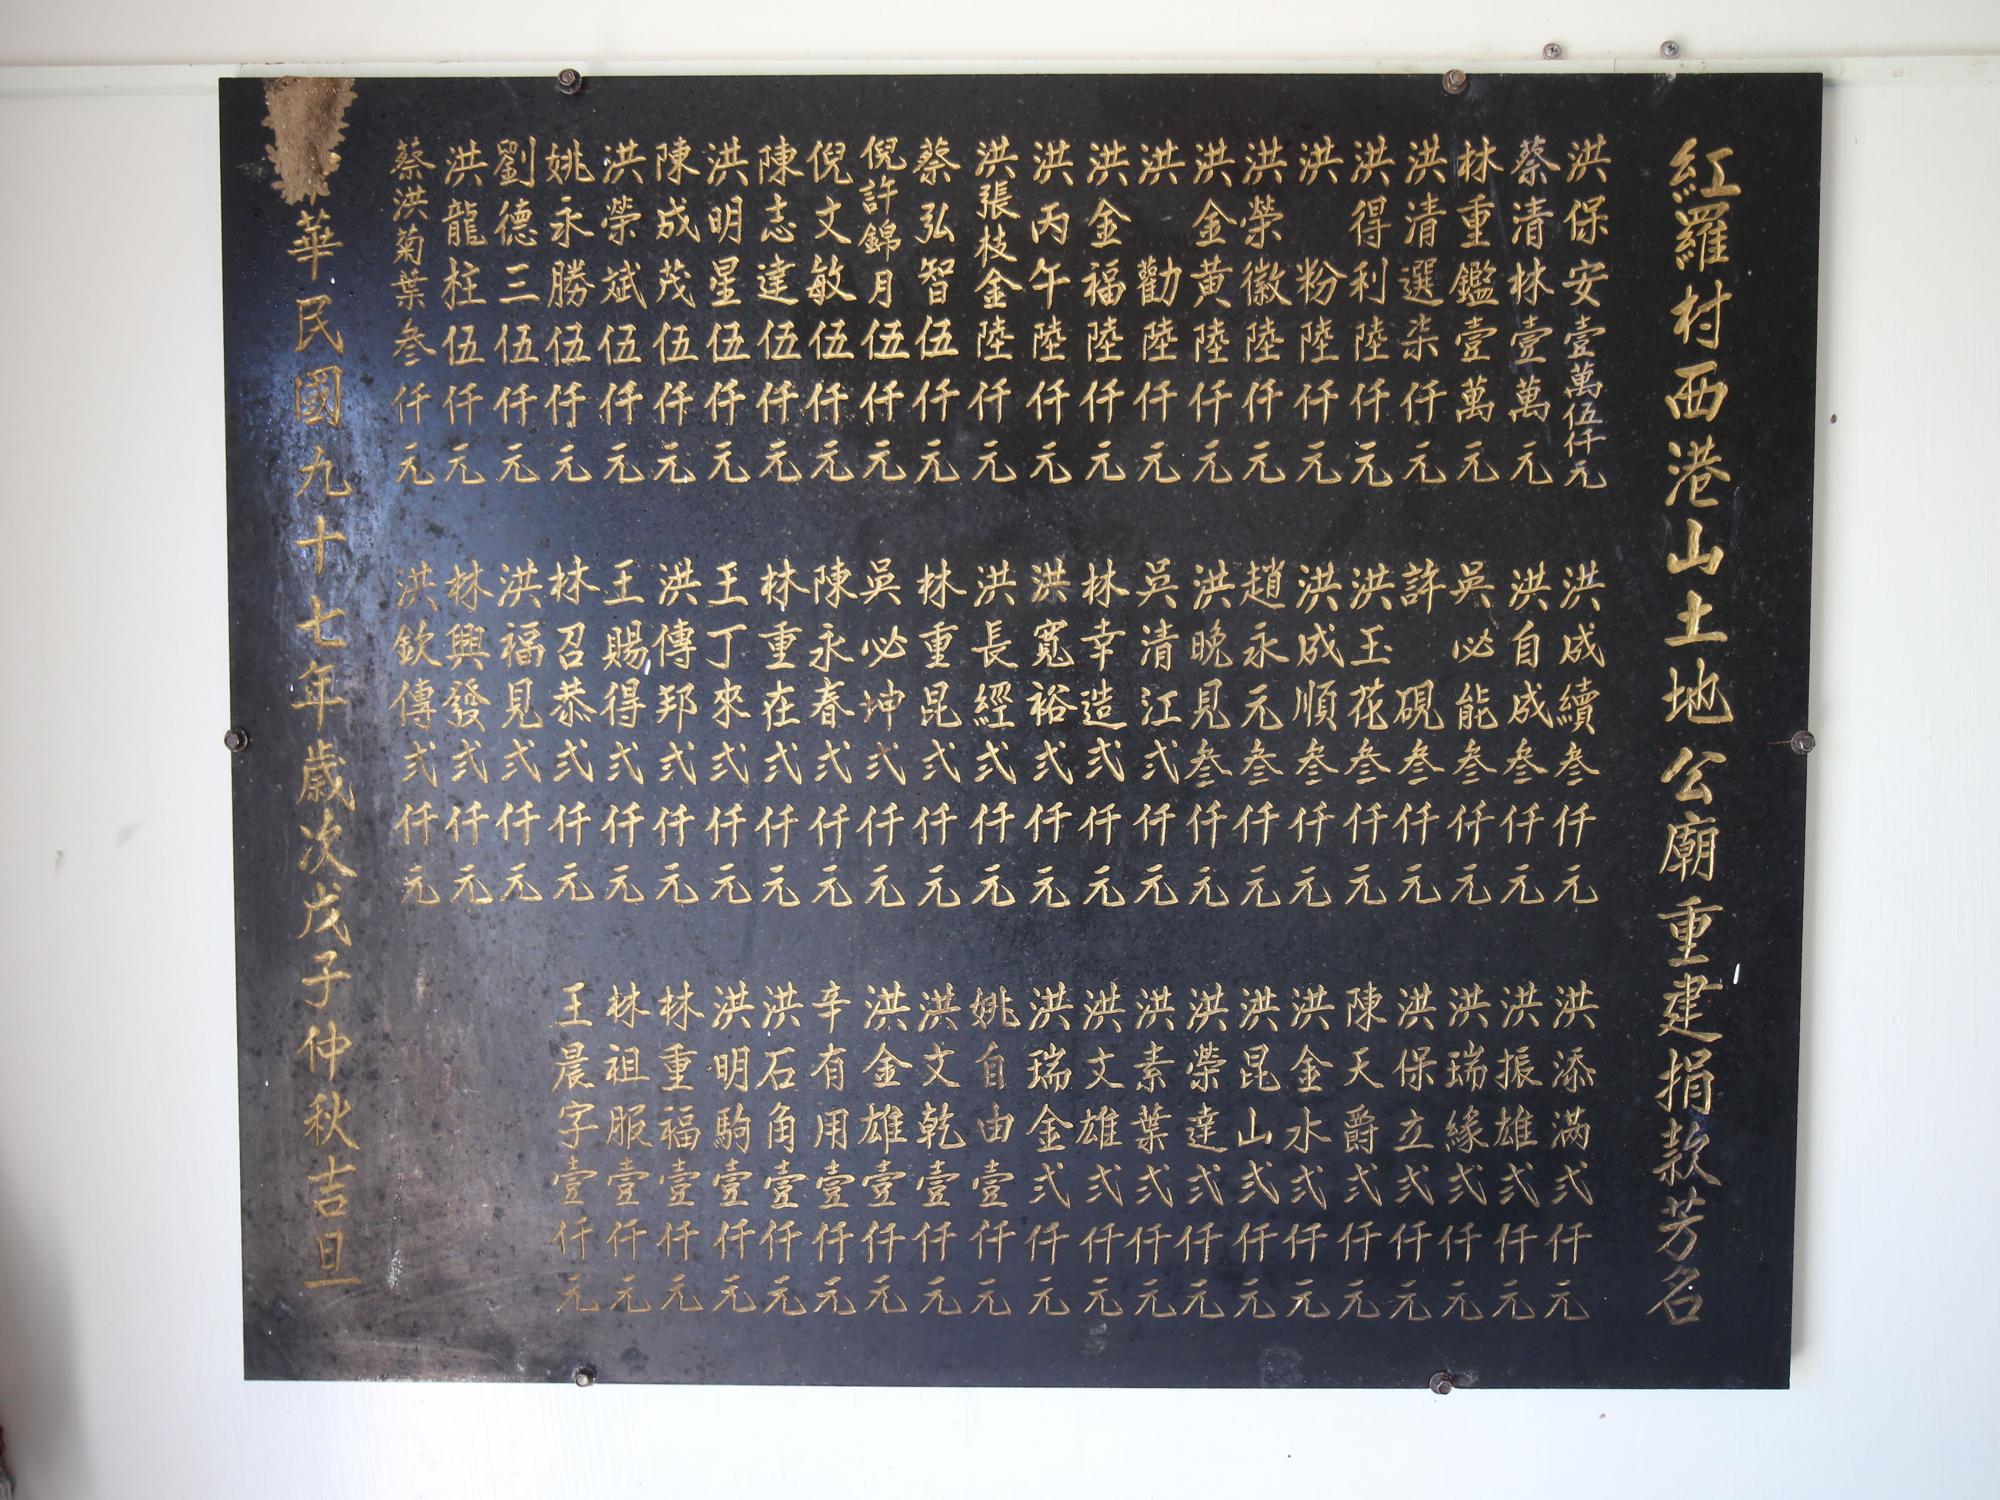 紅羅村西港山土地公廟重建捐款芳名
洪保安壹萬伍仟元
蔡清林壹萬元
林重鑑壹萬元
洪清選柒仟元
洪得利陸仟元
洪粉陸仟元
洪榮徽陸仟元
洪金黃陸仟元
洪勸陸仟元
洪金福陸仟元
洪丙午陸仟元
洪張枝金陸仟元
蔡弘智伍仟元
倪許錦月伍仟元
倪文敏伍仟元
陳志達伍仟元
洪明星伍仟元
陳成茂伍仟元
洪榮斌伍仟元
姚永勝伍仟元
劉德三伍仟元
洪龍柱伍仟元
蔡洪菊葉叁仟元
洪成續叁仟元
洪自成叁仟元
吳必能叁仟元
許硯叁仟元
洪玉花叁仟元
洪成順叁仟元
趙永元叁仟元
洪晚見叁仟元
吳清江弍仟元
林幸造弍仟元
洪寬裕弍仟元
洪長經弍仟元
林重昆弍仟元
吳必坤弍仟元
陳永春弍仟元
林重在弍仟元
王丁來弍仟元
洪傳邦弍仟元
王賜得弍仟元
林召恭弍仟元
洪福見弍仟元
林興發弍仟元
洪欽傳弍仟元
洪添滿弍仟元
洪振雄弍仟元
洪瑞緣弍仟元
洪保立弍仟元
陳天爵弍仟元
洪金水弍仟元
洪昆山弍仟元
洪榮達弍仟元
洪素葉弍仟元
洪文雄弍仟元
洪瑞金弍仟元
姚自由壹仟元
洪文乾壹仟元
洪金雄壹仟元
辛有用壹仟元
洪石角壹仟元
洪明駒壹仟元
林重福壹仟元
林祖服壹仟元
王晨字壹仟元
華民國九十七年歲次戊子仲秋吉旦